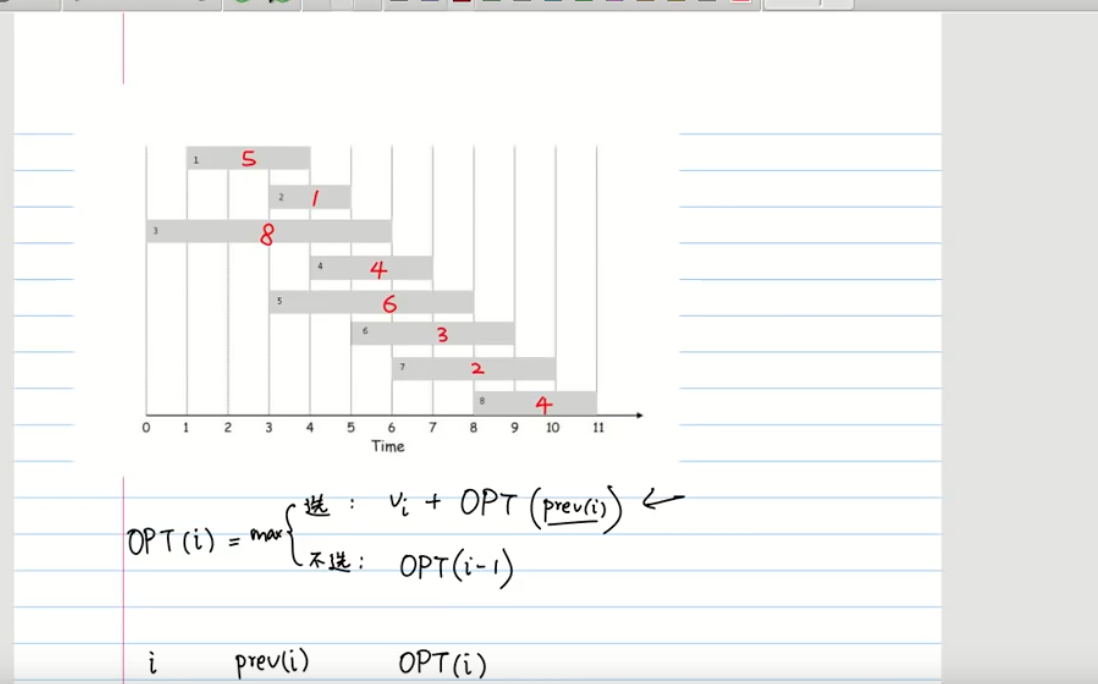 1 5
2 1
3 8
4 4
5 6
6 3
7 2
8 4
0 1 2 3 4 5 6 7 8 9 10 11
Time
OPT(i) = max
选: vi + OPT(prev(i)) ←
不选: OPT(i-1)
i prev(i) OPT(i)